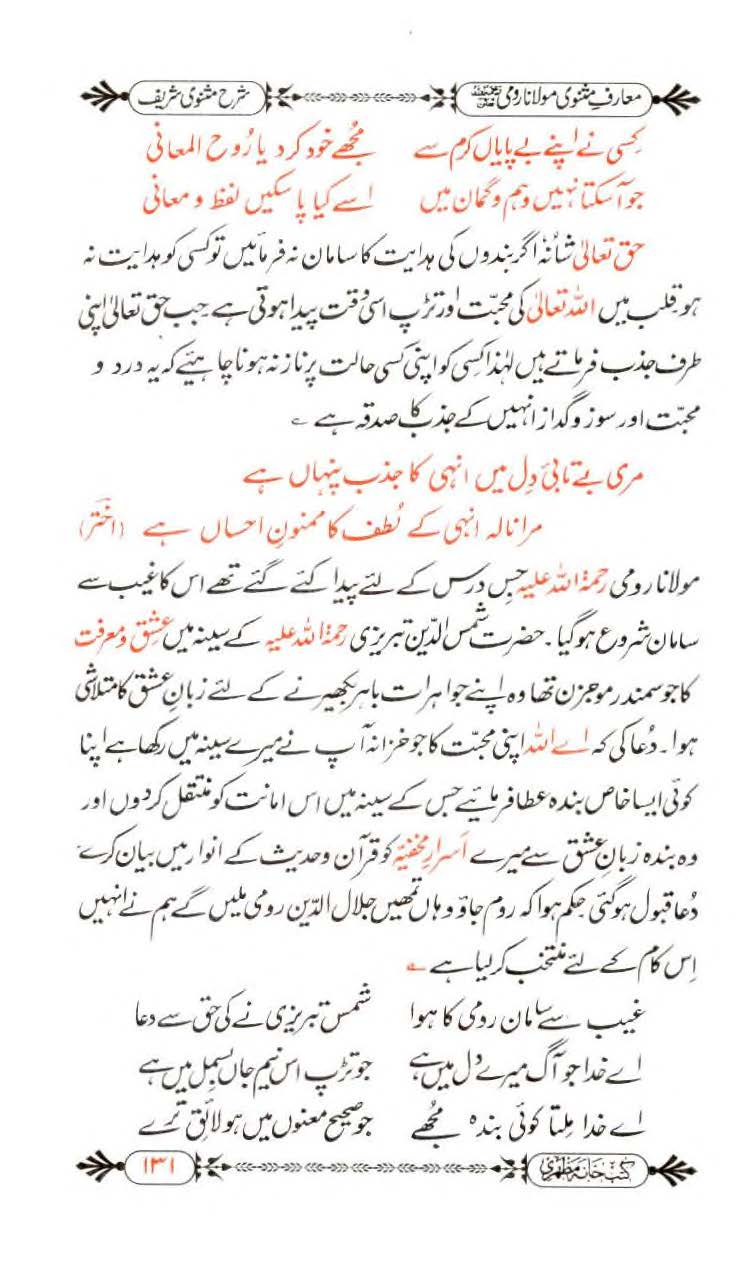 معارفِ مثنوی مولانا رومی رحمۃ اللہ علیہ شرح مثنوی شریف
کسی نے اپنے بے پایاں کرم سے مجھے خود کر دیا رُوح المعانی
جو آ سکتا نہیں وہم و گمان میں اسے کیا پا سکیں لفظ و معانی
حق تعالیٰ شانہٗ اگر بندوں کی ہدایت کا سامان نہ فرمائیں تو کسی کو ہدایت نہ
ہو قلب میں اللہ تعالیٰ کی محبّت اور تڑپ اسی وقت پیدا ہوتی ہے جب حق تعالیٰ اپنی
طرف جذب فرماتے ہیں لہٰذا کسی کو اپنی کسی حالت پر ناز نہ ہونا چاہیئے کہ یہ درد و
محبّت اور سوز و گداز انہیں کے جذب کا صدقہ ہے ؎
مری بے تابئ دِل میں انہی کا جذب پنہاں ہے
مرا نالہ انہی کے لُطف کا ممنونِ احساں ہے (اخترؔ)
مولانا رومی رحمۃ اللہ علیہ جس درس کے لئے پیدا کئے گئے تھے اس کا غیب سے
سامان شروع ہو گیا۔ حضرت شمس الدّین تبریزی رحمۃ اللہ علیہ کے سینہ میں عشق و معرفت
کا جو سمندر موجزن تھا وہ اپنے جواہرات باہر بکھیرنے کے لئے زبانِ عشق کا متلاشی
ہوا۔ دُعا کی کہ اے اللہ اپنی محبّت کا جو خزانہ آپ نے میرے سینہ میں رکھا ہے اپنا
کوئی ایسا خاص بندہ عطا فرمائیے جس کے سینہ میں اس امانت کو منتقل کر دوں اور
وہ بندہ زبانِ عشق سے میرے اَسرارِ مخفیّہ کو قرآن و حدیث کے انوار میں بیان کرے
دُعا قبول ہو گئی حکم ہوا کہ روم جاؤ وہاں تمھیں جلال الدّین رومی ملیں گے ہم نے انہیں
اِس کام کے لئے منتخب کر لیا ہے ؎
غیب سے سامان رومی کا ہوا شمس تبریزی نے کی حق سے دعا
اے خدا جو آگ میرے دل میں ہے جو تڑپ اس نیم جاں بسمل میں ہے
اے خدا مِلتا کوئی بندہ مجھے جو صحیح معنوں میں ہو لائق ترے
کتب خانہ مظہری ۱۳۱